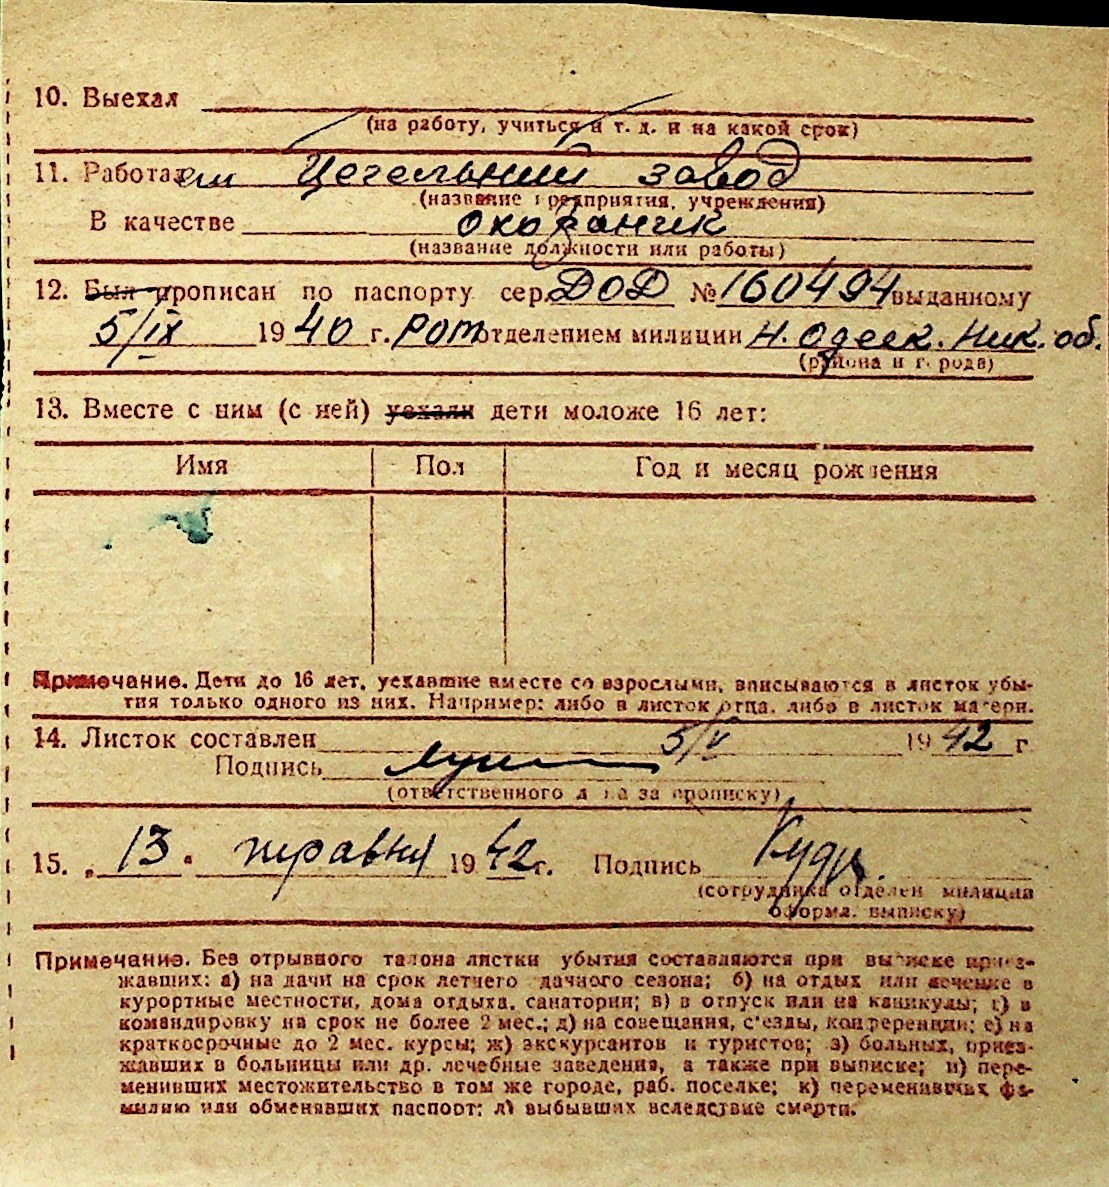 10. Выехал
(на работу, учиться и т. д. и на какой срок)
11. Работает Цегельний завод
(название предприятия, учреждения)
В качестве охоранчик
(название должности или работы)
12. Был прописан по паспорту сер. ДОД № 160494 выданному
5/IX 1940 г. РОМ отделением милиции Н. Одеск. Ник. об.
(района и города)
13. Вместе с ним (с ней) уехали дети моложе 16 лет:
Имя Пол Год и месяц рождения
Примечание. Дети до 16 лет, уехавшие вместе со взрослыми, вписываются в листок убы-
тия только одного из них. Например: либо в листок отца, либо в листок матери.
14. Листок составлен 5/V 1942 г
Подпись
(ответственного лица за прописку)
15. „13" травня 1942 г. Подпись
(сотрудника отделен милиции
оформл. выписку)
Примечание. Без отрывного талона листки убытия составляются при выписке приез-
жавших: а) на дачи на срок летнего дачного сезона; б) на отдых или лечение в
курортные местности, дома отдыха, санатории; в) в отпуск или на каникулы; г) в
командировку на срок не более 2 мес.; д) на совещания, с'езды, конференции; е) на
краткосрочные до 2 мес. курсы; ж) экскурсантов и туристов; з) больных, приез-
жавших в больницы или др. лечебные заведения, а также при выписке; и) пере-
менивших местожительство в том же городе, раб. поселке; к) переменивших фа-
милию или обменявших паспорт; л) выбывших вследствие смерти.